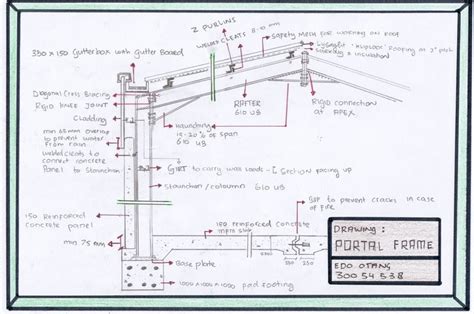 Z PURLINS
WELDED CLEATS 8-10 mm
Safety MESH FOR WORKING ON ROOF
Lysaght 'KLIPLOK' ROOFING AT 2° pitch
350 x 150 Gutterbox with Gutter Board
Diagonal Cross Bracing
RIGID KNEE JOINT
Cladding
min 65mm overlap
to prevent water
from rain
welded cleats to
connect concrete
Panel to Stanchion
150 reinforced
concrete panel
min 75mm
RAFTER
610 UB
RIGID connection
at APEX
Haunching
15-20% of span
610 UB
GIRT to carry wind loads - C Section facing up
Stanchion/coloumn 610 UB
GAP TO prevent CRACKS IN case
of Fire
150 reinforced concrete
Base plate
1000 x 1000 x 1000 pad footing
150
250
DRAWING :
PORTAL FRAME
EDO OTANG
300 54 538